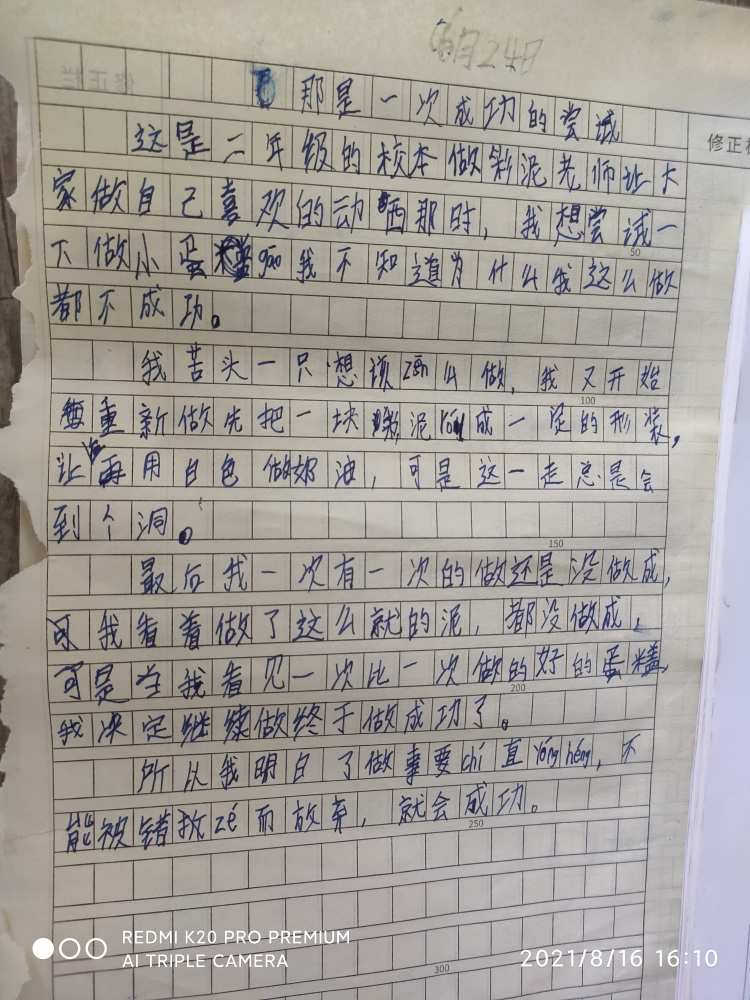 6月24日
修正栏
那是一次成功的尝试
修正栏
这是二年级的校本做彩泥老师让大
家做自己喜欢的动西那时，我想尝试一
50
下做小蛋gāo我不知道为什么我这么做
都不成功。
我苦头一只想该zěn么做，我又开始
100
重新做先把一块彩泥róu成一定的形装，
让后再用白色做奶油，可是这一走总是会
到个洞。
150
最后我一次有一次的做还是没做成，
可我看着做了这么就的泥，都没做成，
可是当我看见一次比一次做的好的蛋糕
200
我决定继续做终于做成功了。
所以我明白了做事要chí直yǒng héng，不
能被错折zé而放弃，就会成功。
250
300
REDMI K20 PRO PREMIUM
AI TRIPLE CAMERA
2021/8/16 16:10